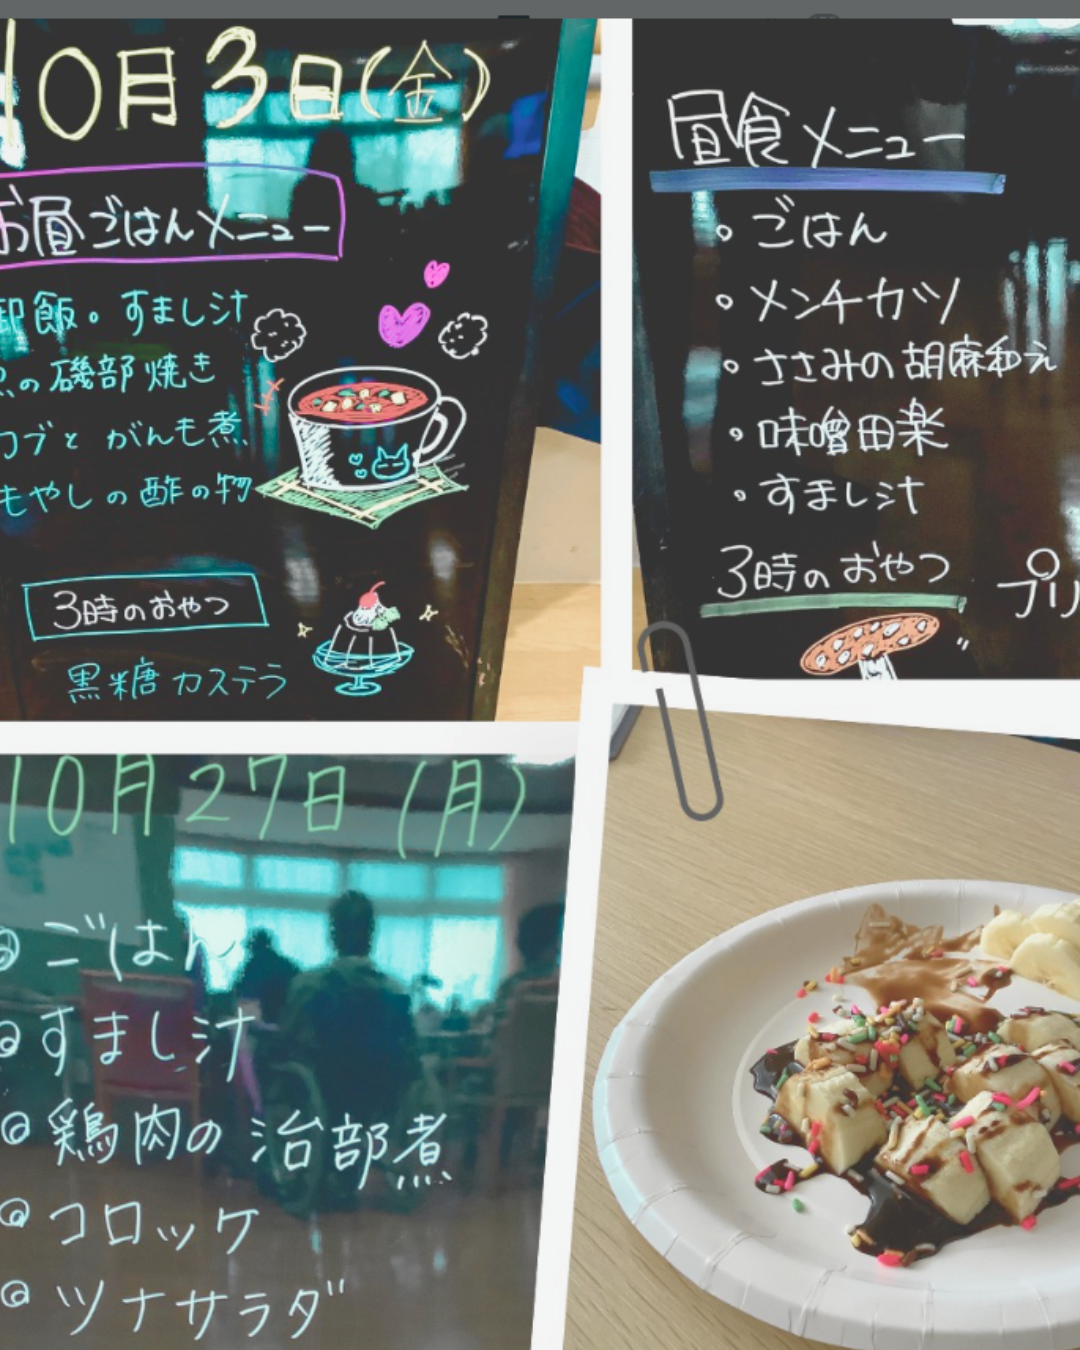 10月3日(金)
お昼ごはんメニュー
卵飯。すまし汁
の磯部焼き
カブとがんも煮
もやしの酢の物
3時のおやつ
黒糖カステラ
昼食メニュー
。ごはん
。メンチカツ
。ささみの胡麻和え
。味噌田楽
。すまし汁
3時のおやつ プリ
10月27日(月)
◎ごはん
◎すまし汁
◎鶏肉の治部煮
◎コロッケ
◎ツナサラダ